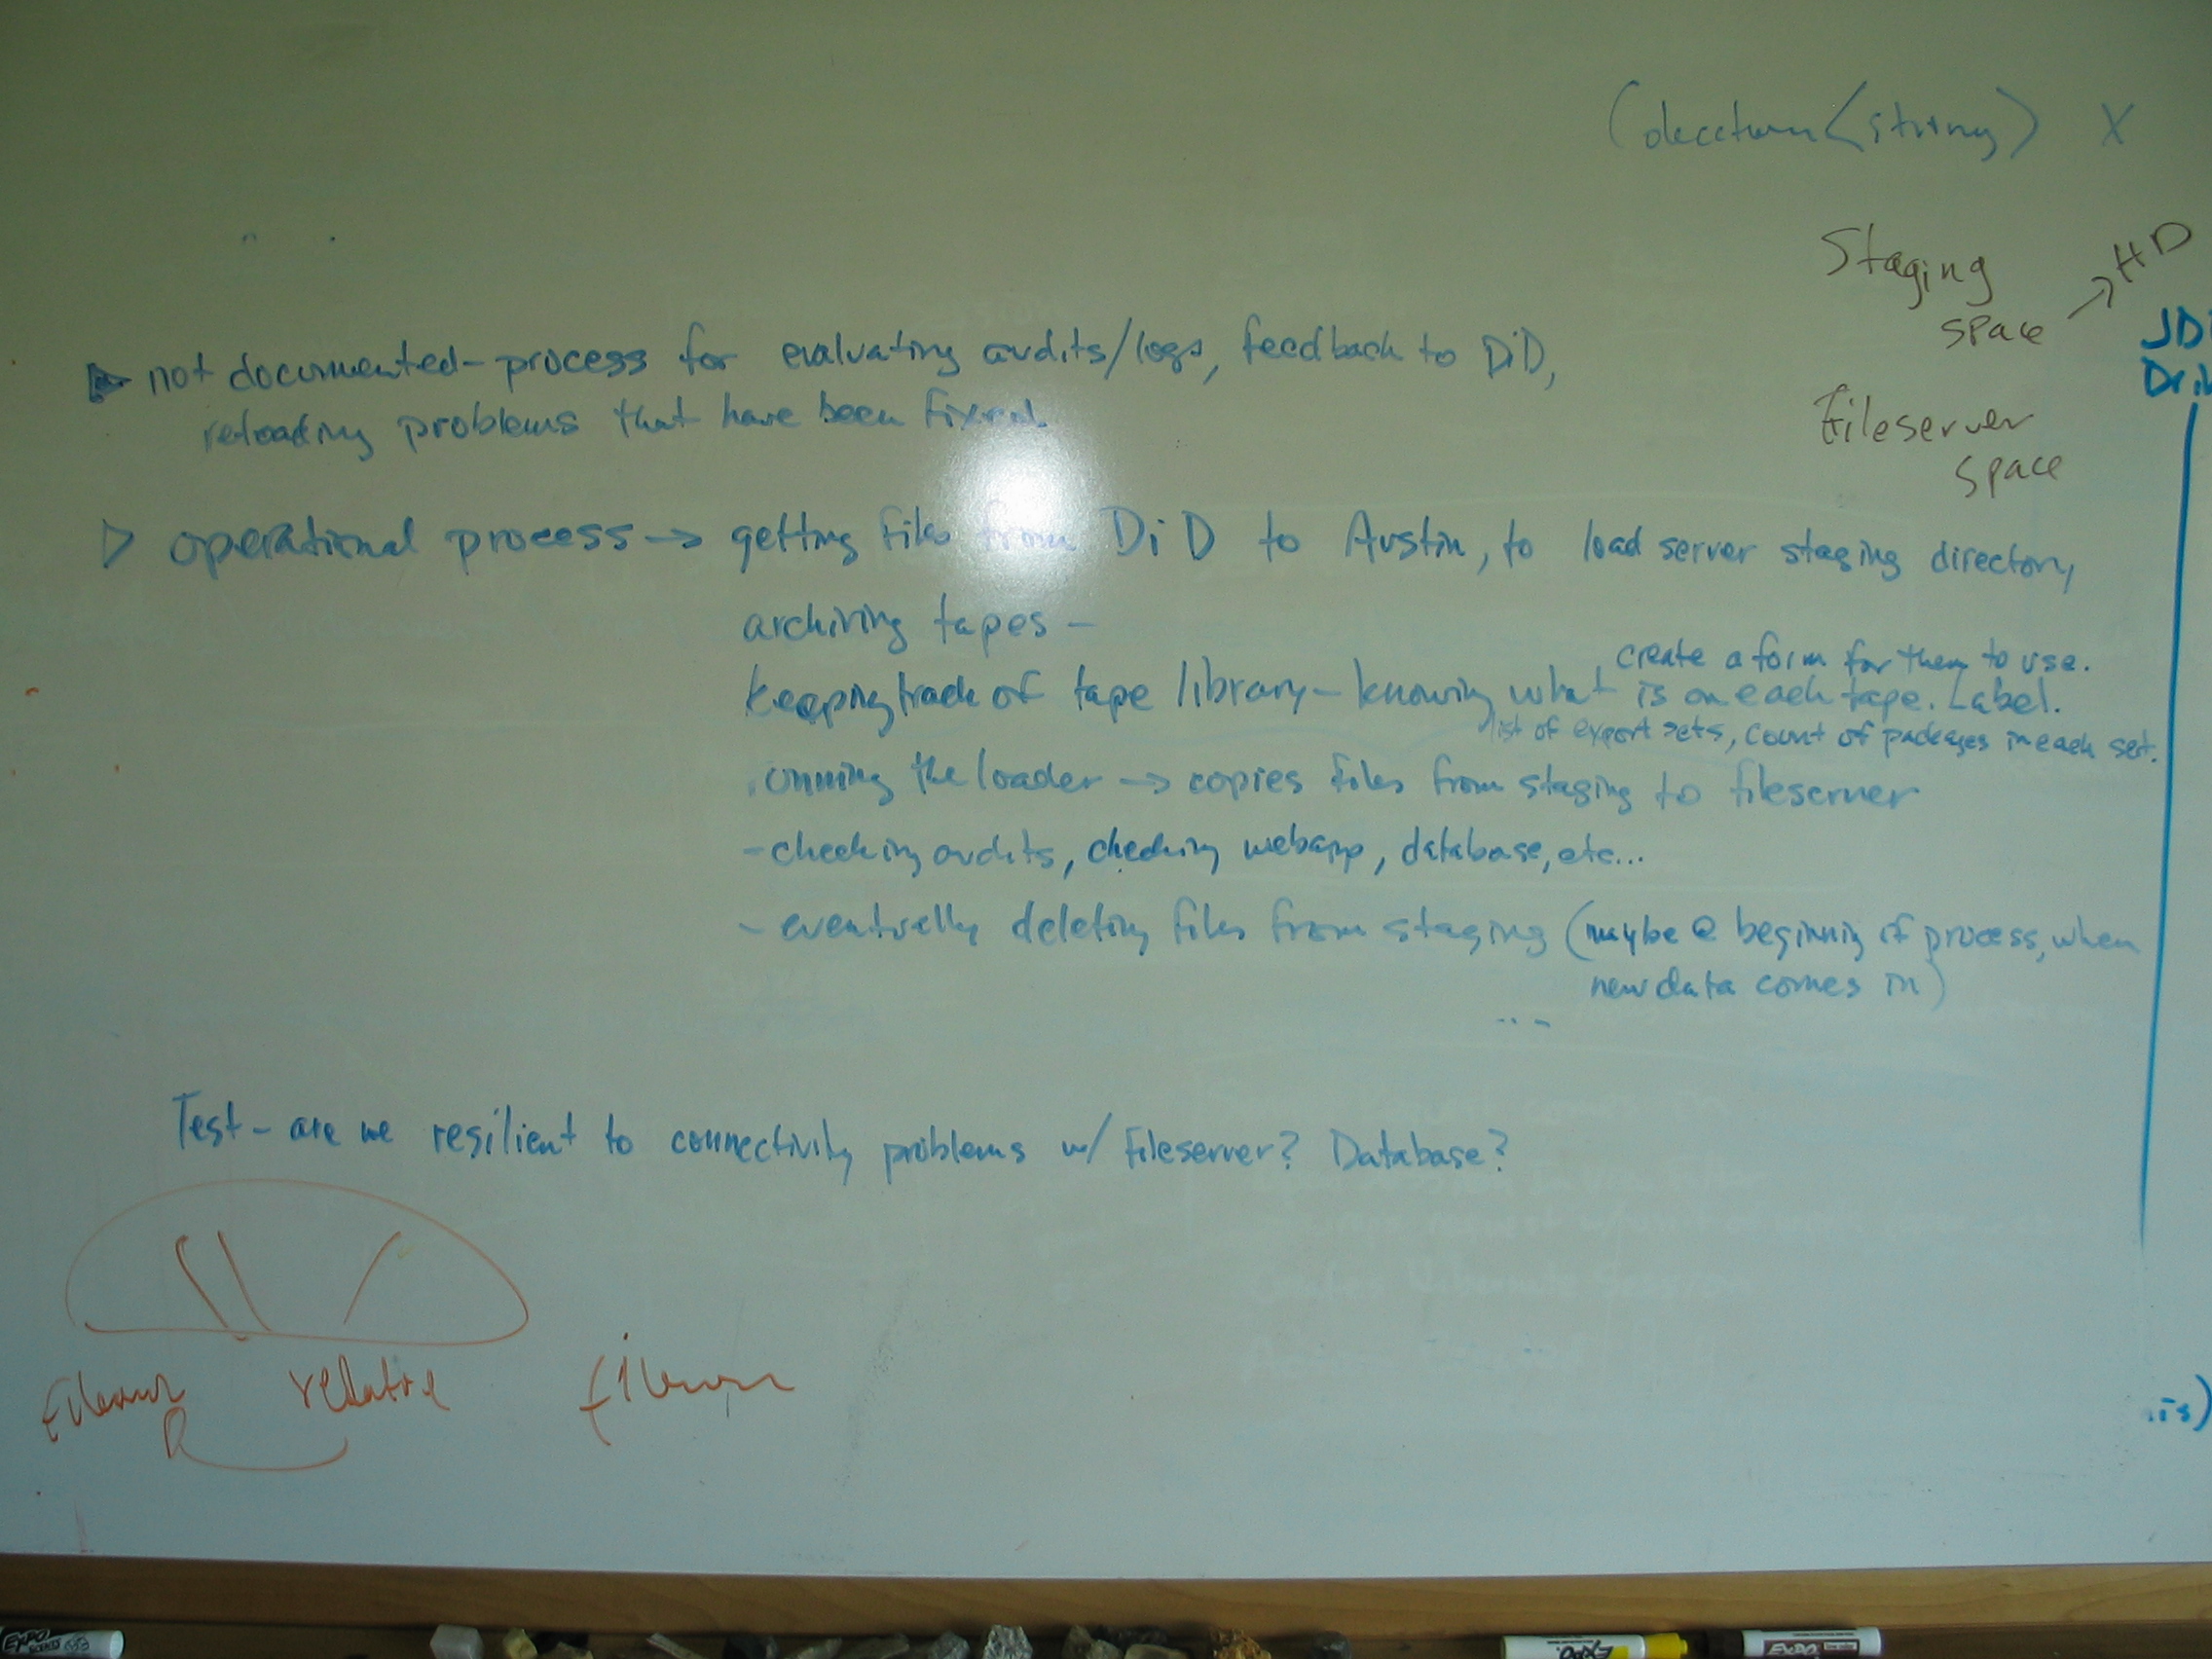 Collection<String> X
Staging
space → HD
JD
Dri
Fileserver
space
▷ not documented - process for evaluating audits/logs, feedback to DiD,
reloading problems that have been fixed.
▷ operational process → getting files from DiD to Austin, to load server staging directory,
archiving tapes -
create a form for them to use.
keeping track of tape library - knowing what is on each tape. Label.
list of export sets, count of packages in each set.
running the loader → copies files from staging to fileserver
- checking audits, checking webapp, database, etc...
- eventually deleting files from staging (maybe @ beginning of process, when
new data comes in)
...
Test - are we resilient to connectivity problems w/ fileserver? Database?
relative
EXPO
EXPO
EXPO